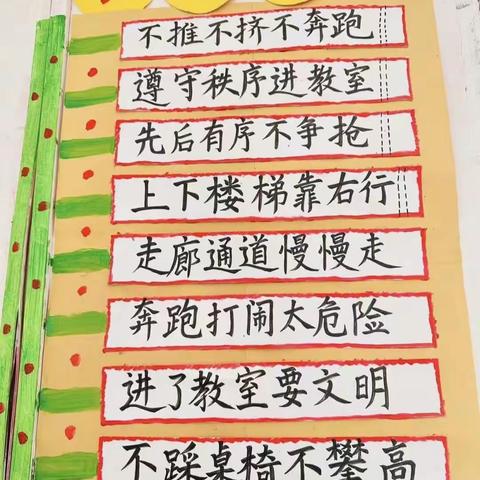 不推不挤不奔跑
遵守秩序进教室
先后有序不争抢
上下楼梯靠右行
走廊通道慢慢走
奔跑打闹太危险
进了教室要文明
不踩桌椅不攀高